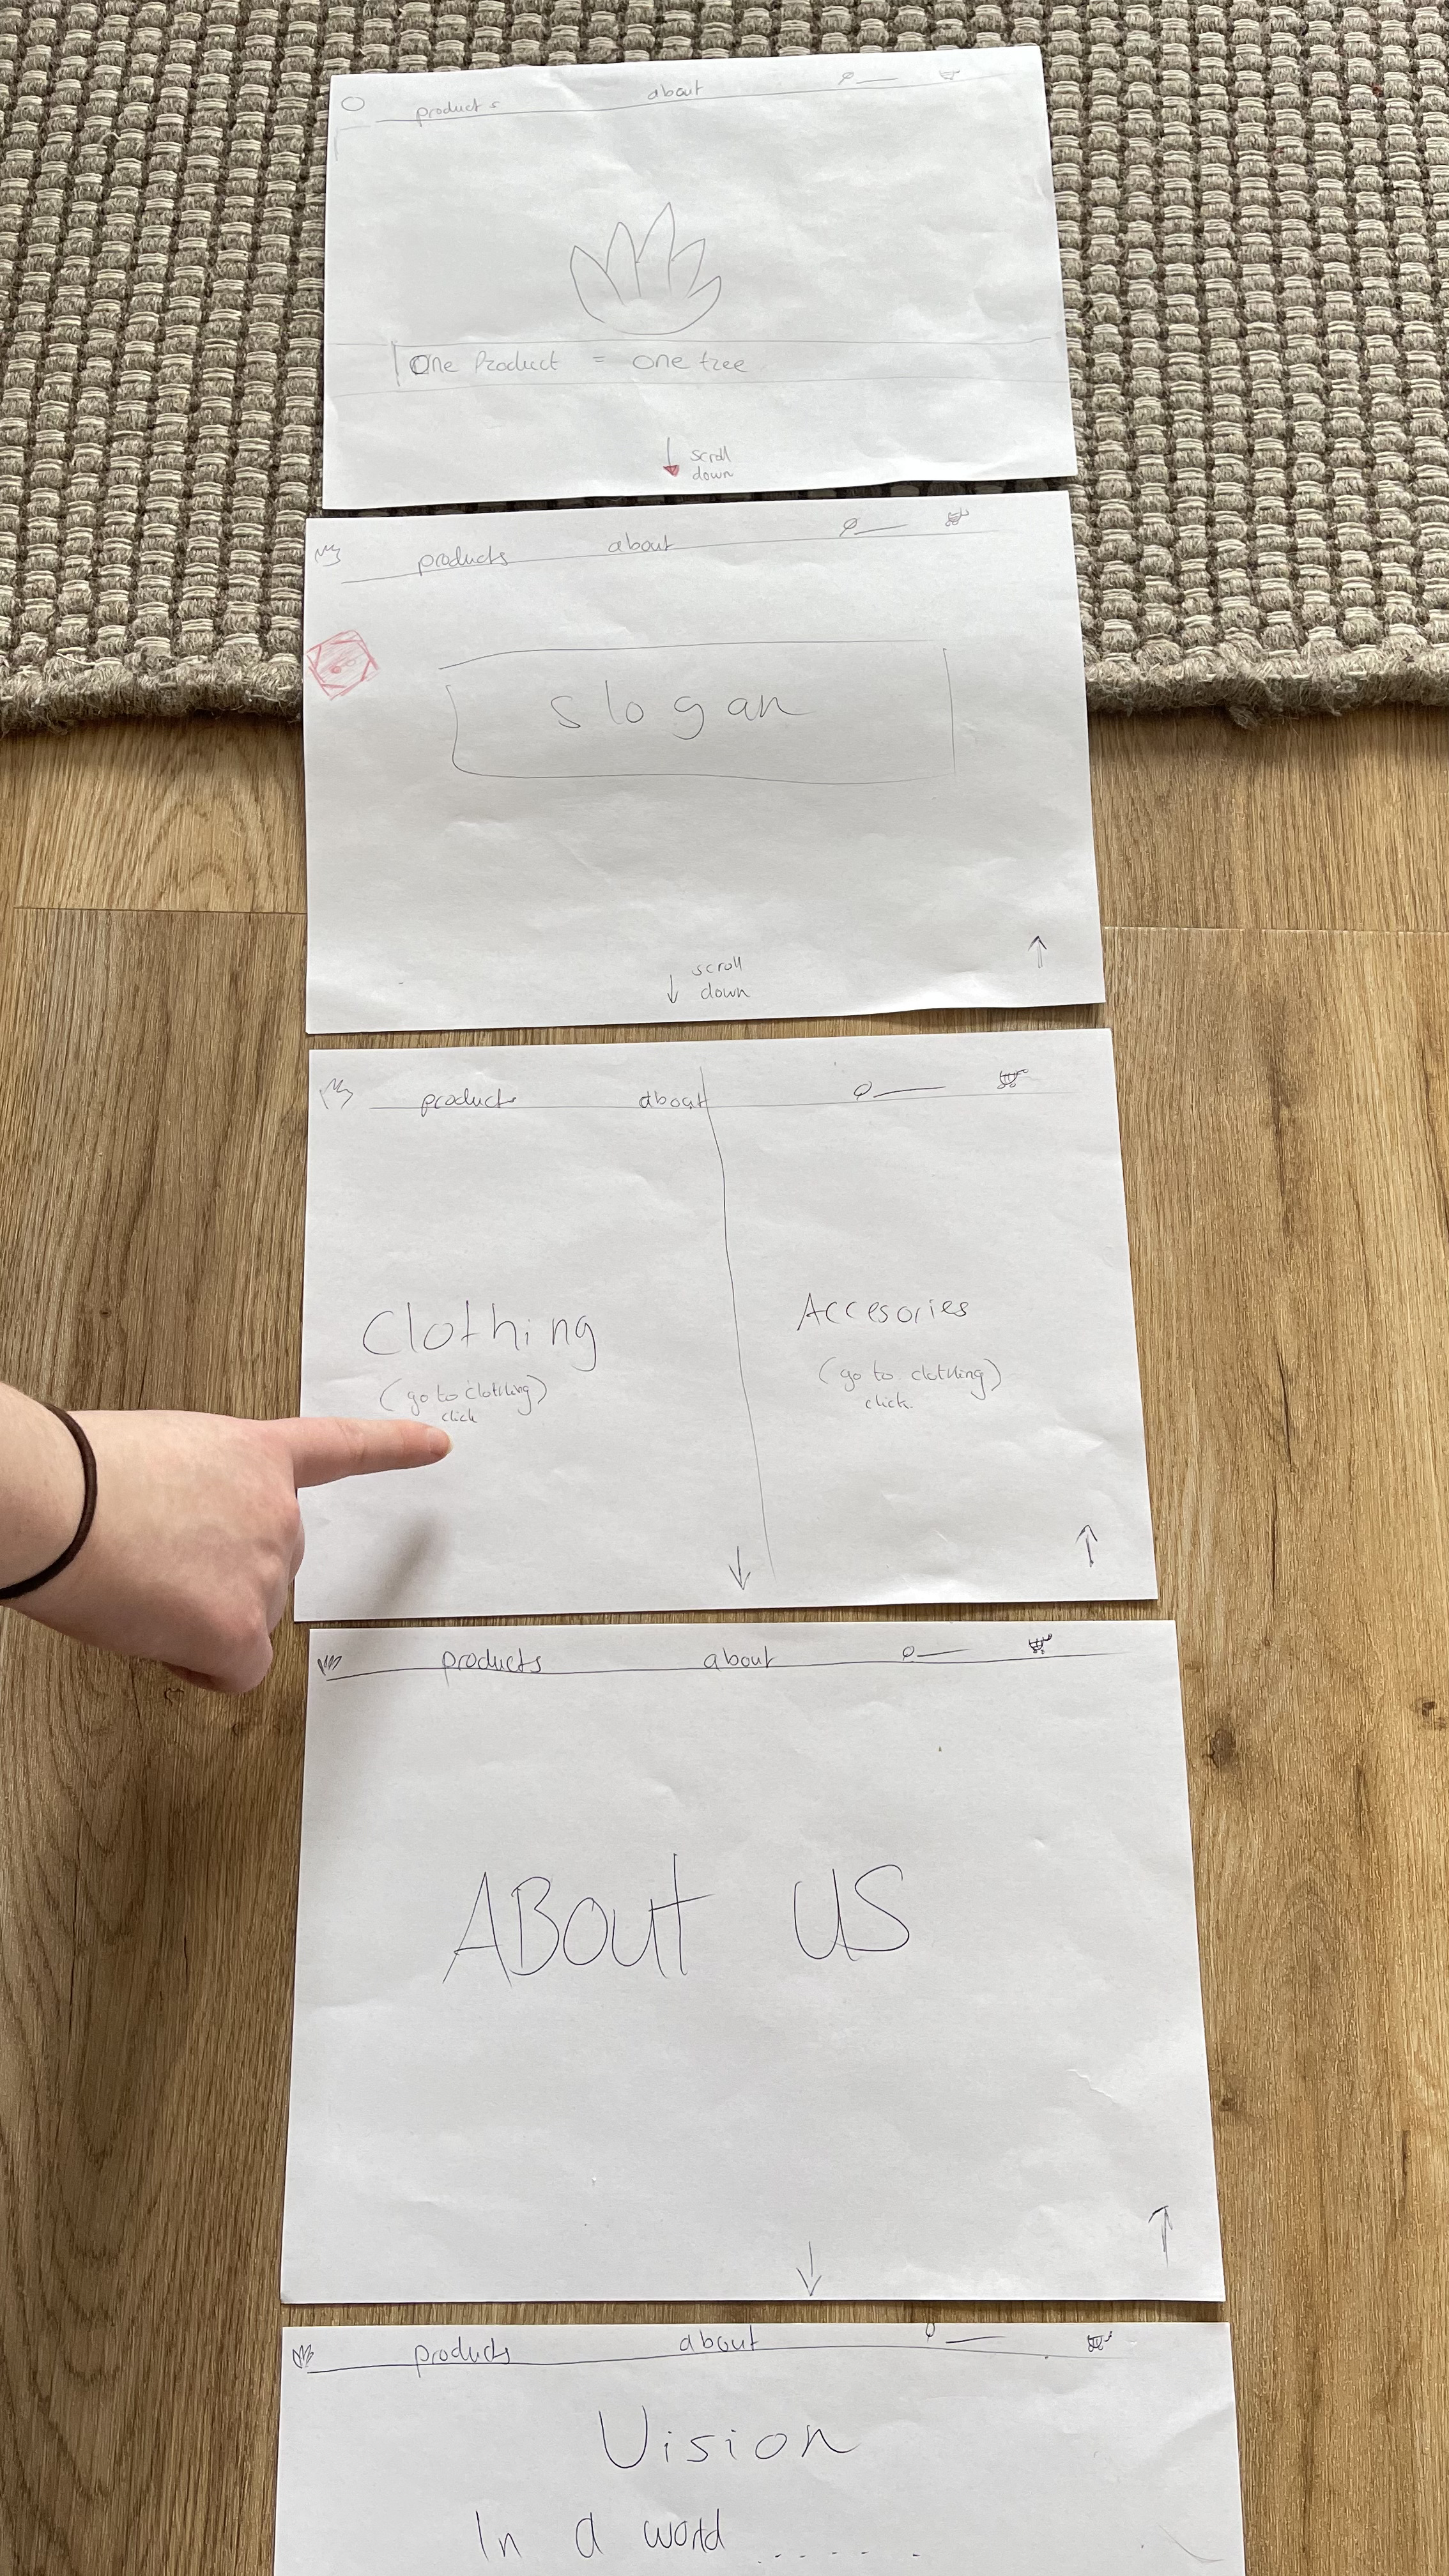 products about
One Product = one tree
scroll
down
products about
slogan
scroll
down
products about
Clothing
(go to clothing)
click
Accesories
(go to clothing)
click.
products about
ABOUT US
products about
Vision
In a world .......